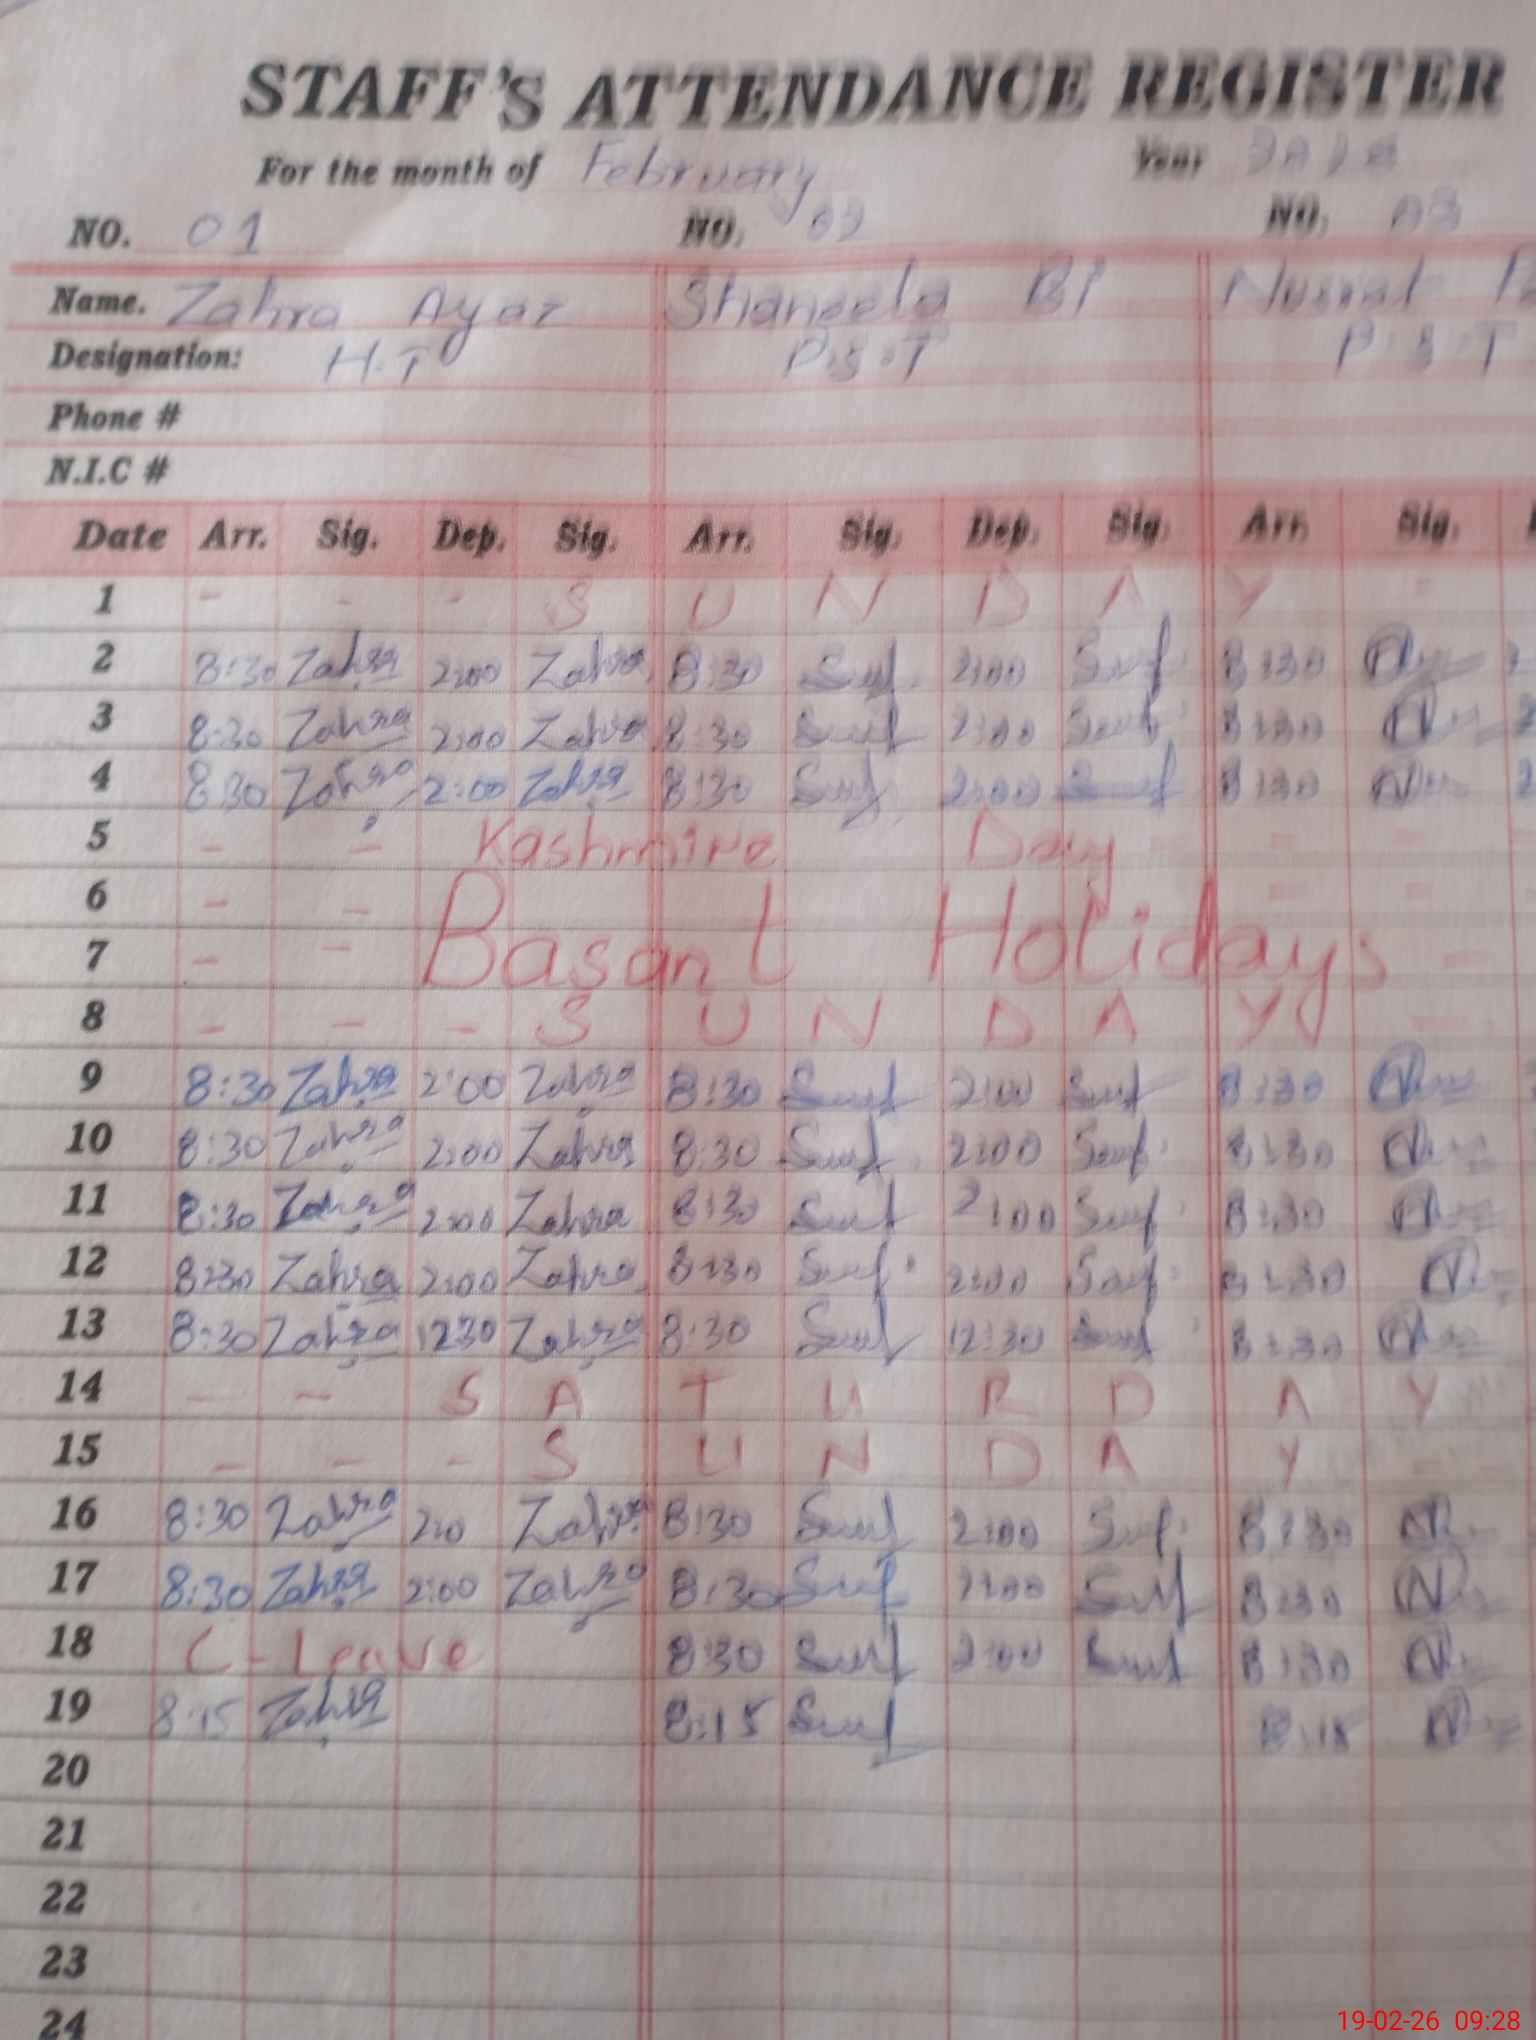 STAFF'S ATTENDANCE REGISTER
For the month of February Year 2026
NO. 01 NO. 02 NO. 03
Name. Zahra Ayaz Shaneela Bi Nusrat
Designation: H.T P.S.T P.S.T
Phone #
N.I.C #
Date Arr. Sig. Dep. Sig. Arr. Sig. Dep. Sig. Arr. Sig.
1 - - - S U N D A Y -
2 8:30 Zahra 2:00 Zahra 8:30 2:00 8:30
3 8:30 Zahra 2:00 Zahra 8:30 2:00 8:30
4 8:30 Zahra 2:00 Zahra 8:30 2:00 8:30
5 - - Kashmire Day - - -
6 - - - -
7 - - Basant Holidays -
8 - - - S U N D A Y -
9 8:30 Zahra 2:00 Zahra 8:30 2:00 8:30
10 8:30 Zahra 2:00 Zahra 8:30 2:00 8:30
11 8:30 Zahra 2:00 Zahra 8:30 2:00 8:30
12 8:30 Zahra 2:00 Zahra 8:30 2:00 8:30
13 8:30 Zahra 1230 Zahra 8:30 12:30 8:30
14 - - S A T U R D A Y
15 - - - S U N D A Y
16 8:30 Zahra 2:0 Zahra 8:30 2:00 8:30
17 8:30 Zahra 2:00 Zahra 8:30 2:00 8:30
18 C-Leave 8:30 2:00 8:30
19 8:15 Zahra 8:15 8:15
20
21
22
23
24
19-02-26 09:28